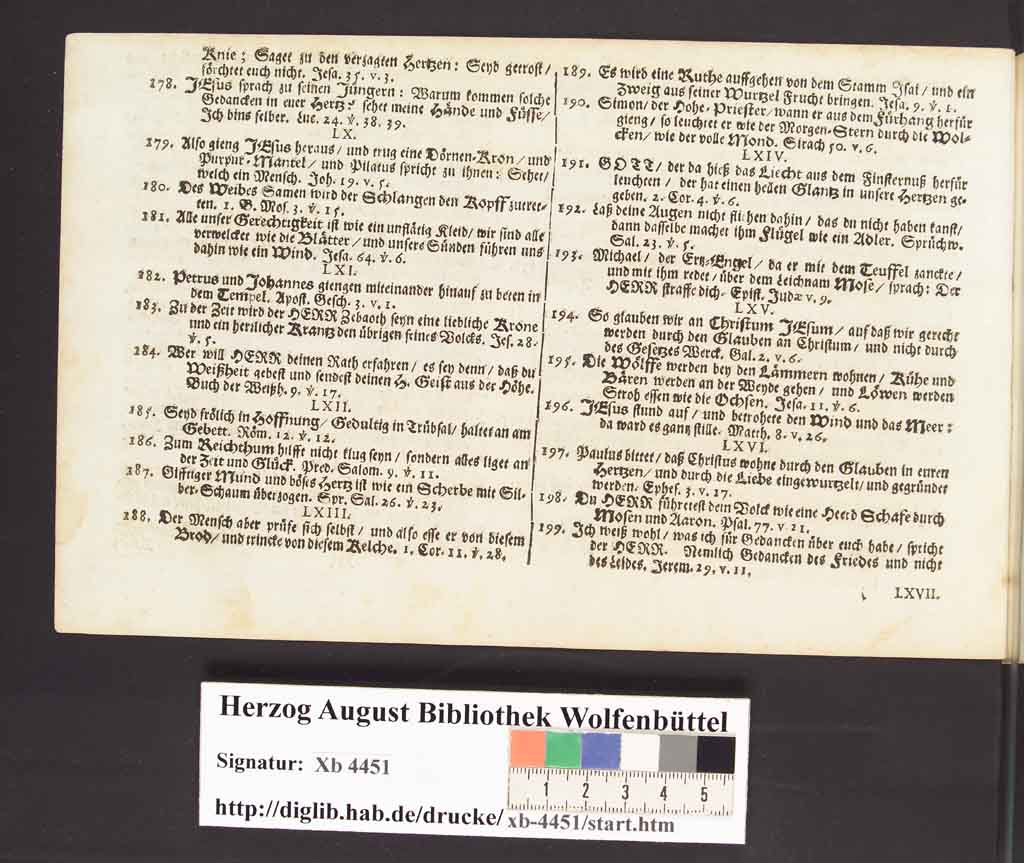 Knie; Saget zu den verzagten Hertzen: Seyd getrost/
förchtet euch nicht. Jesa. 35. v. 3.
178. JEsus sprach zu seinen Jüngern: Warum kommen solche
Gedancken in euer Hertz? sehet meine Hände und Füsse/
Jch bins selber. Luc. 24. v. 38. 39.
LX.
179. Also gieng JEsus heraus/ und trug eine Dörnen-Kron/ und
Purpur-Mantel/ und Pilatus spricht zu ihnen: Sehet/
welch ein Mensch. Joh. 19. v. 5.
180. Des Weibes Samen wird der Schlangen den Kopff zutret-
ten. 1. B. Mos. 3. v. 15.
181. Alle unser Gerechtigkeit ist wie ein unflätig Kleid/ wir sind alle
verwelcket wie die Blätter/ und unsere Sünden führen uns
dahin wie ein Wind. Jesa. 64. v. 6.
LXI.
182. Petrus und Johannes giengen miteinander hinauf zu beten in
dem Tempel. Apost. Gesch. 3. v. 1.
183. Zu der Zeit wird der HERR Zebaoth seyn eine liebliche Krone
und ein herrlicher Krantz den übrigen seines Volcks. Jes. 28.
v. 5.
184. Wer will HERR deinen Rath erfahren/ es sey denn/ daß du
Weißheit gebest und sendest deinen H. Geist aus der Höhe.
Buch der Weißh. 9. v. 17.
LXII.
185. Seyd frölich in Hoffnung/ Gedultig in Trübsal/ haltet an am
Gebett. Röm. 12. v. 12.
186. Zum Reichthum hilfft nicht klug seyn/ sondern alles liget an
der Zeit und Glück. Pred. Salom. 9. v. 11.
187. Gifftiger Mund und böses Hertz ist wie ein Scherbe mit Sil-
ber-Schaum überzogen. Spr. Sal. 26. v. 23.
LXIII.
188. Der Mensch aber prüfe sich selbst/ und also esse er von diesem
Brod/ und trincke von diesem Kelche. 1. Cor. 11. v. 28.
189. Es wird eine Ruthe auffgehen von dem Stamm Jsai/ und ein
Zweig aus seiner Wurtzel Frucht bringen. Jesa. 9. v. 1.
190. Simon/ der Hohe-Priester/ wann er aus dem Fürhang herfür
gieng/ so leuchtet er wie der Morgen-Stern durch die Wol-
cken/ wie der volle Mond. Sirach 50. v. 6.
LXIV.
191. GOTT/ der da hieß das Liecht aus dem Finsternuß herfür
leuchten/ der hat einen hellen Glantz in unsere Hertzen ge-
geben. 2. Cor. 4. v. 6.
192. Laß deine Augen nicht fliehen dahin/ das du nicht haben kanst/
dann dasselbe machet ihm Flügel wie ein Adler. Sprüchw.
Sal. 23. v. 5.
193. Michael/ der Ertz-Engel/ da er mit dem Teuffel zanckte/
und mit ihm redet/ über dem Leichnam Mose/ sprach: Der
HERR straffe dich. Epist. Judæ v. 9.
LXV.
194. So glauben wir an Christum JEsum/ auf daß wir gerecht
werden durch den Glauben an Christum/ und nicht durch
des Gesetzes Werck. Gal. 2. v. 6.
195. Die Wölffe werden bey den Lämmern wohnen/ Kühe und
Bären werden an der Weyde gehen/ und Löwen werden
Stroh essen wie die Ochsen. Jesa. 11. v. 6.
196. JEsus stund auf/ und betrohete den Wind und das Meer:
da ward es gantz stille. Matth. 8. v. 26.
LXVI.
197. Paulus bittet/ daß Christus wohne durch den Glauben in euren
Hertzen/ und durch die Liebe eingewurtzelt/ und gegründet
werden. Ephes. 3. v. 17.
198. Du HERR führetest dein Volck wie eine Heerd Schafe durch
Mosen und Aaron. Psal. 77. v. 21.
199. Jch weiß wohl/ was ich für Gedancken über euch habe/ spricht
der HERR. Nemlich Gedancken des Friedes und nicht
des Leides. Jerem. 29. v. 11.
LXVII.
Herzog August Bibliothek Wolfenbüttel
Signatur: Xb 4451
1 2 3 4 5
http://diglib.hab.de/drucke/xb-4451/start.htm